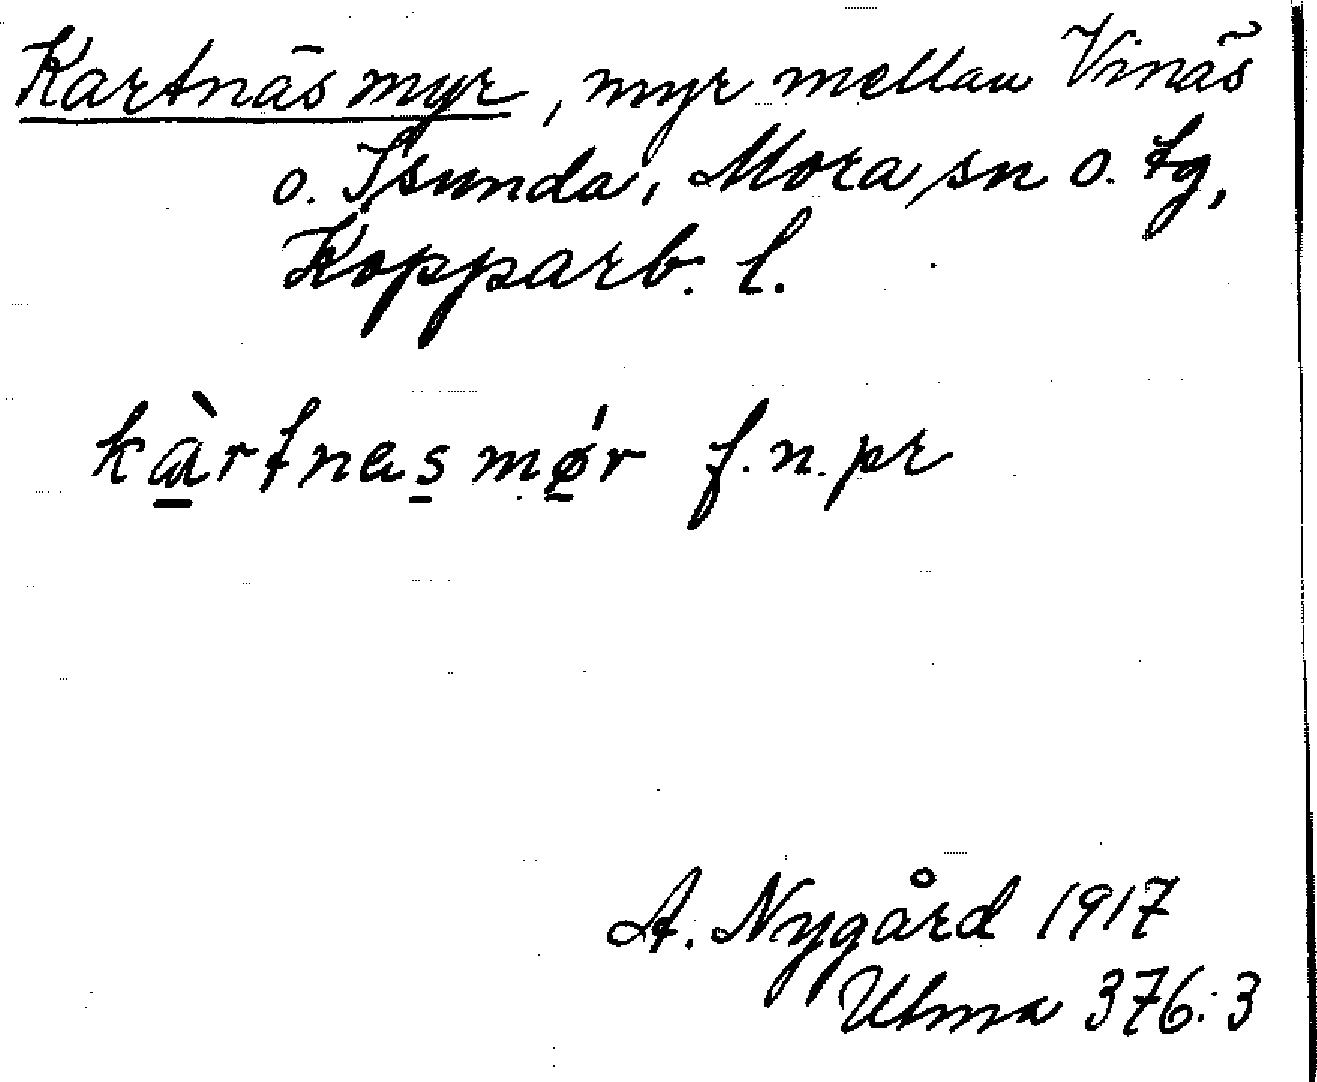 Kartnäs myr, myr mellan Vinäs
o. Isunda, Mora sn o. tg,
Kopparb. l.
kàrtnas mǿr f. n. pr
A. Nygård 1917
Ulma 376:3